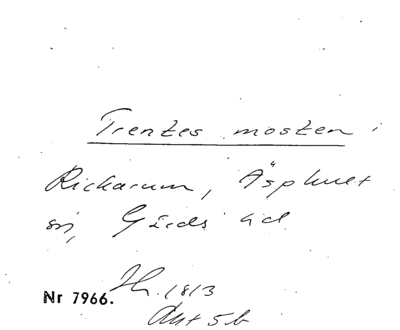 Trentes mosten i
Rickarum, Äsphult
sn, Gärds hd.
Nr 7966. Th. 1813
Akt 5b